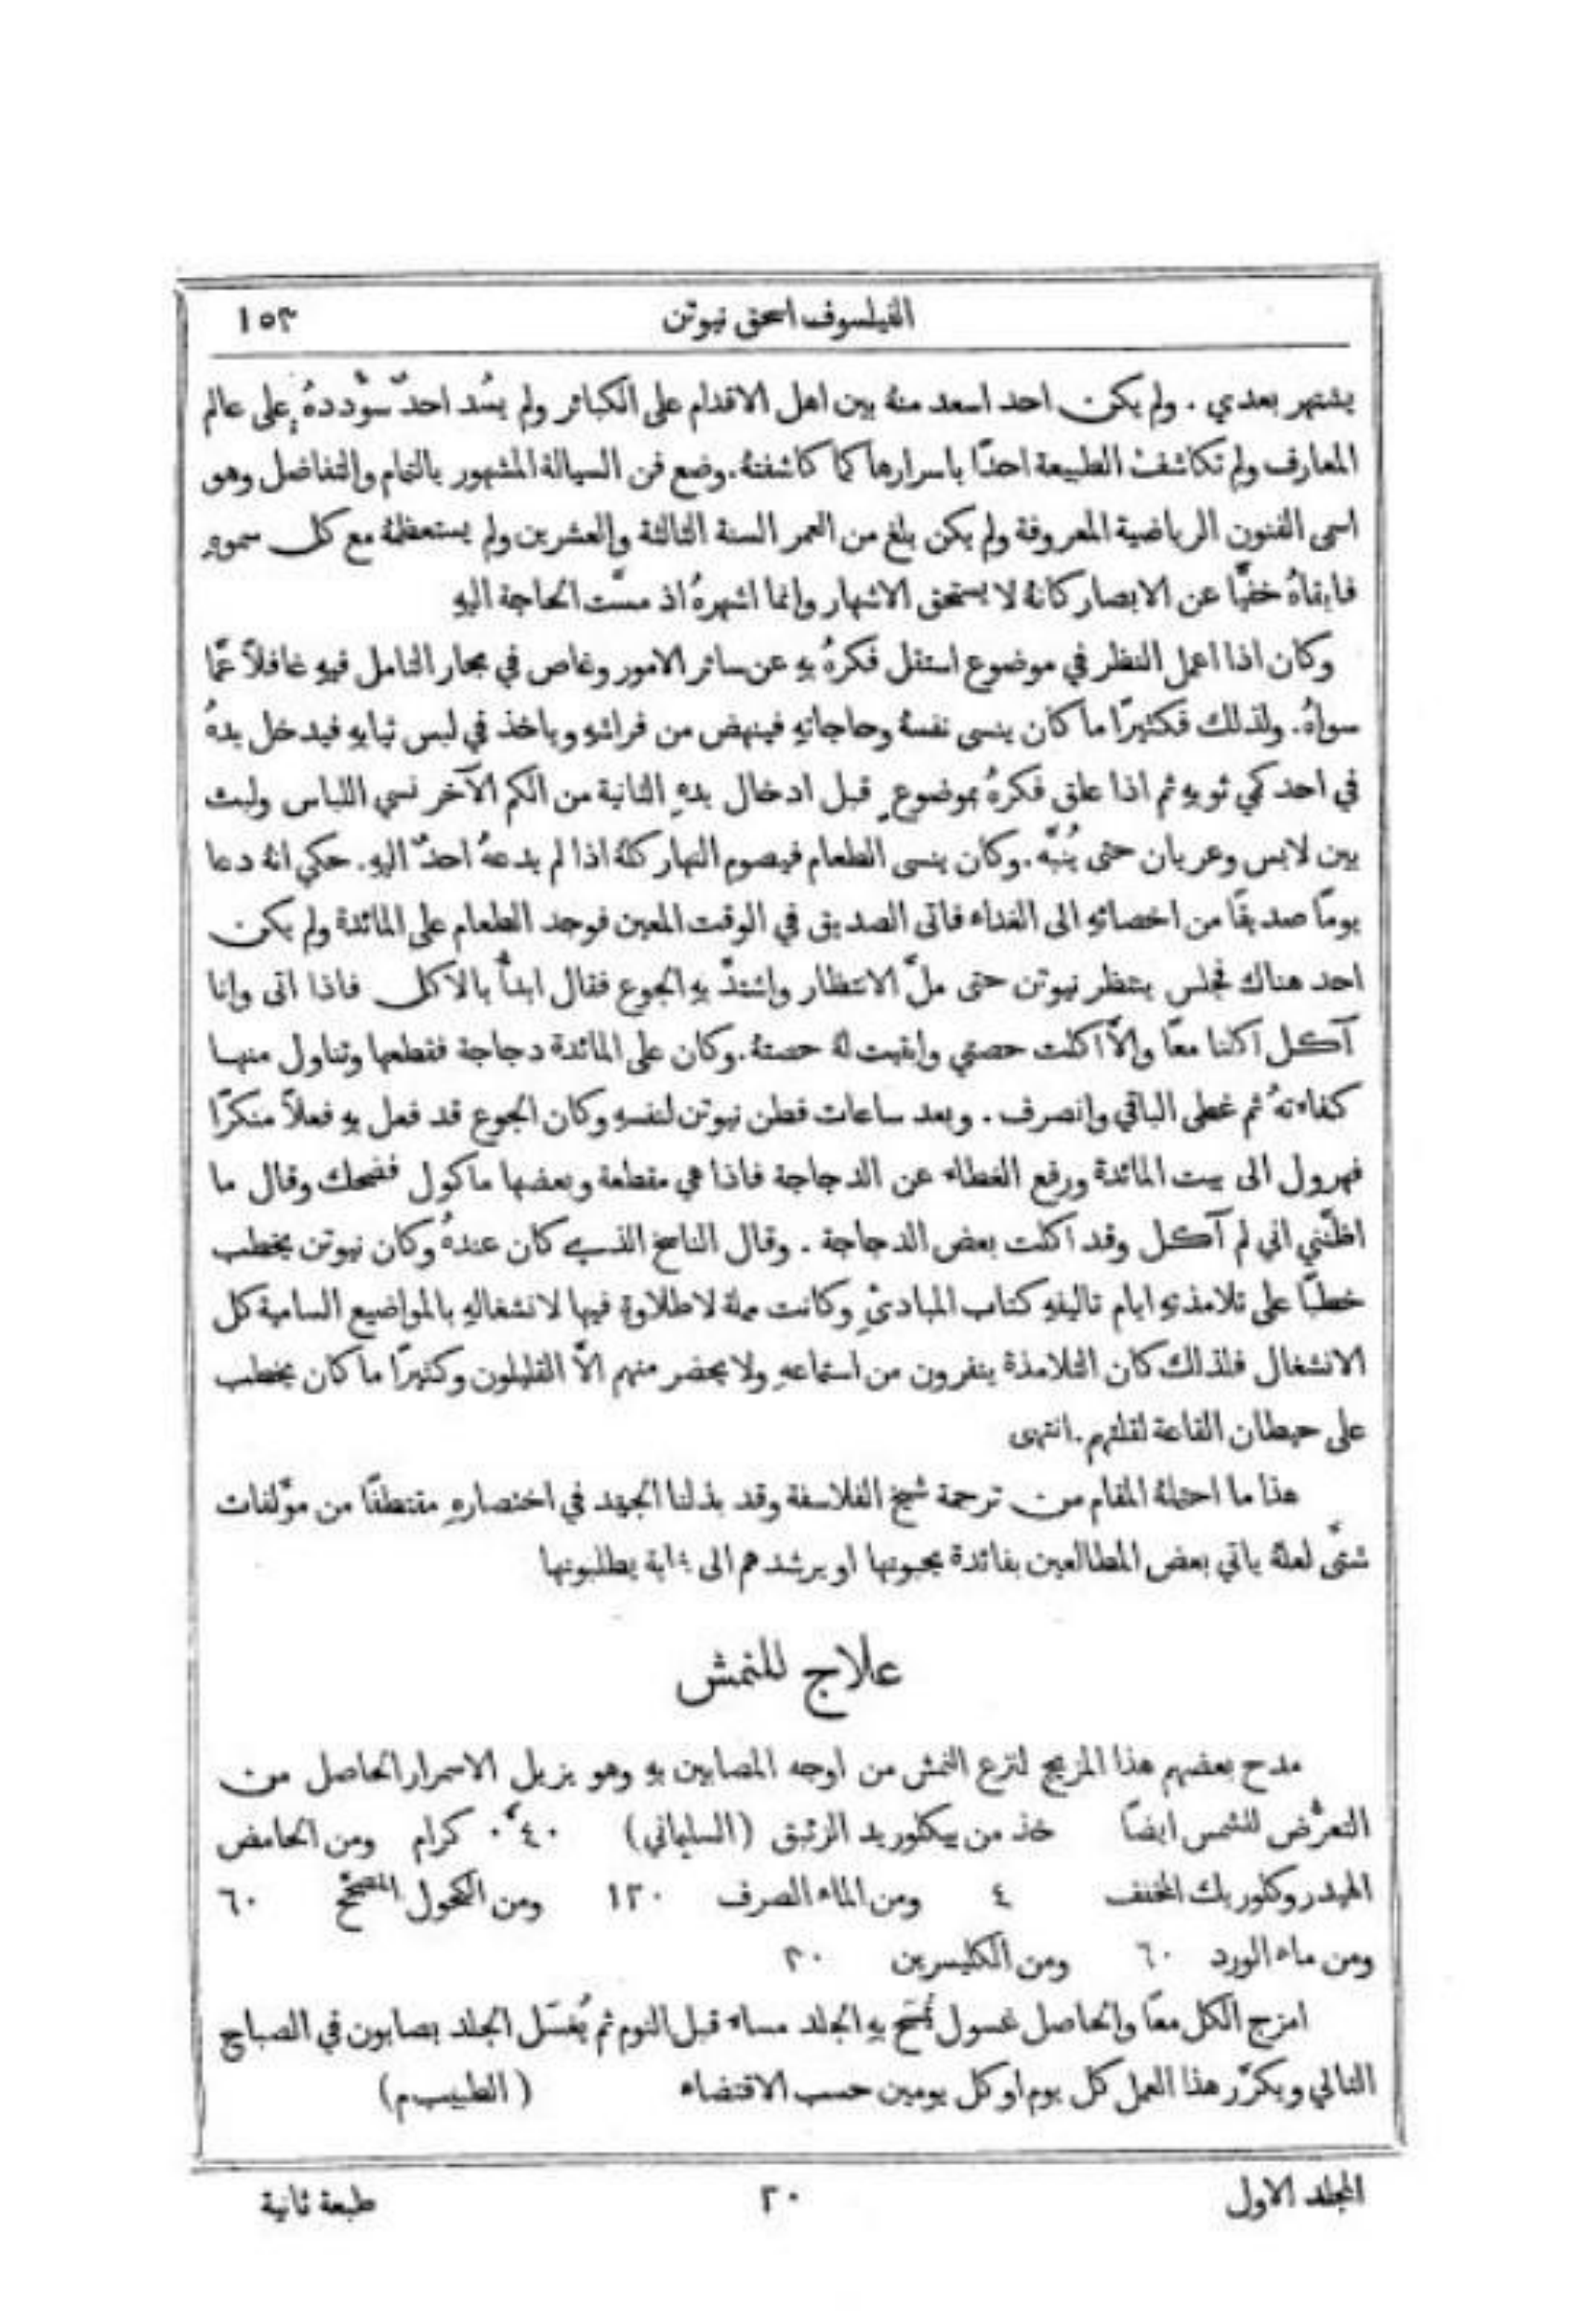 الفيلسوف اسحق نيوتن ١٥٣
يشتهر بعدي . ولم يكن احد اسعد منهُ بين اهل الاقدام على الكبائر ولم يسُد احدٌ سوُّددهُ على عالم
المعارف ولم تكاشف الطبيعة احدًا باسرارها كما كاشفتهُ . وضع فن السيالة المشهور بالتمام والتفاضل وهو
اسمى الفنون الرياضية المعروفة ولم يكن بلغ من العمر السنة الثالثة والعشرين ولم يستعظمهُ مع كل سموهِ
فابقاهُ خفيًّا عن الابصار كانهُ لا يستحق الاشهار وانما اشهرهُ اذ مسَّت الحاجة اليهِ
وكان اذا اعمل النظر في موضوع استقل فكرهُ بهِ عن سائر الامور وغاص في بحار التامل فيهِ غافلاً عمَّا
سواهُ . ولذلك فكثيرًا ما كان ينسى نفسهُ وحاجاتهِ فينهض من فراشهِ وياخذ في لبس ثيابهِ فيدخل يدهُ
في احد كمي ثوبهِ ثم اذا علق فكرهُ بموضوعٍ قبل ادخال يدهِ الثانية من الكم الآخر نسي اللباس ولبث
بين لابس وعريان حتى يُنبَّه . وكان ينسى الطعام فيصوم النهار كلهُ اذا لم يدعهُ احدٌ اليهِ . حكي انهُ دعا
يومًا صديقًا من اخصائهِ الى الغداء فاتى الصديق في الوقت المعين فوجد الطعام على المائدة ولم يكن
احد هناك فجلس ينتظر نيوتن حتى ملَّ الانتظار واشتدَّ بهِ الجوع فقال ابدأُ بالاكل فاذا اتى وانا
آكل اكلنا معًا والَّا اكلت حصتي وابقيت لهُ حصتهُ . وكان على المائدة دجاجة فقطعها وتناول منها
كفاءتهُ ثم غطى الباقي وانصرف . وبعد ساعات فطن نيوتن لنفسهِ وكان الجوع قد فعل بهِ فعلاً منكرًا
فهرول الى بيت المائدة ورفع الغطاء عن الدجاجة فاذا هي مقطعة وبعضها ماكول فضحك وقال ما
اظنَّني اني لم آكل وقد اكلت بعض الدجاجة . وقال الناسخ الذي كان عندهُ وكان نيوتن يخطب
خطبًا على تلامذتهِ ايام تاليفهِ كتاب المبادئِ وكانت مملة لا طلاوة فيها لانشغالهِ بالمواضيع السامية كل
الانشغال فلذلك كان التلامذة ينفرون من استماعهِ ولا يحضر منهم الَّا القليلون وكثيرًا ما كان يخطب
على حيطان القاعة لقلتهم . انتهى
هذا ما احتملهُ المقام من ترجمة شيخ الفلاسفة وقد بذلنا الجهد في اختصارهِ مقتطفًا من موَّلفات
شتَّى لعلهُ ياتي بعض المطالعين بفائدة يحبونها او يرشدهم الى يطلبونها
علاج للنمش
مدح بعضهم هذا المزيج لنزع النمش من اوجه المصابين بهِ وهو يزيل الاسمرار الحاصل من
التعرُّض للشمس ايضًا خذ من بيكلوريد الزئبق (السليماني) ٠٤٠، كرام ومن الحامض
الهيدروكلوريك المخفف ٤ ومن الماء الصرف ١٢٠ ومن الكحول المصحَّح ٦٠
ومن ماء الورد ٦٠ ومن الكليسرين ٢٠
امزج الكل معًا والحاصل غسول يُمسَح بهِ الجلد مساء قبل النوم ثم يُغسَل الجلد بصابون في الصباح
التالي ويكرَّر هذا العمل كل يوم او كل يومين حسب الاقتضاء (الطبيب م)
المجلد الاول ٢٠ طبعة ثانية